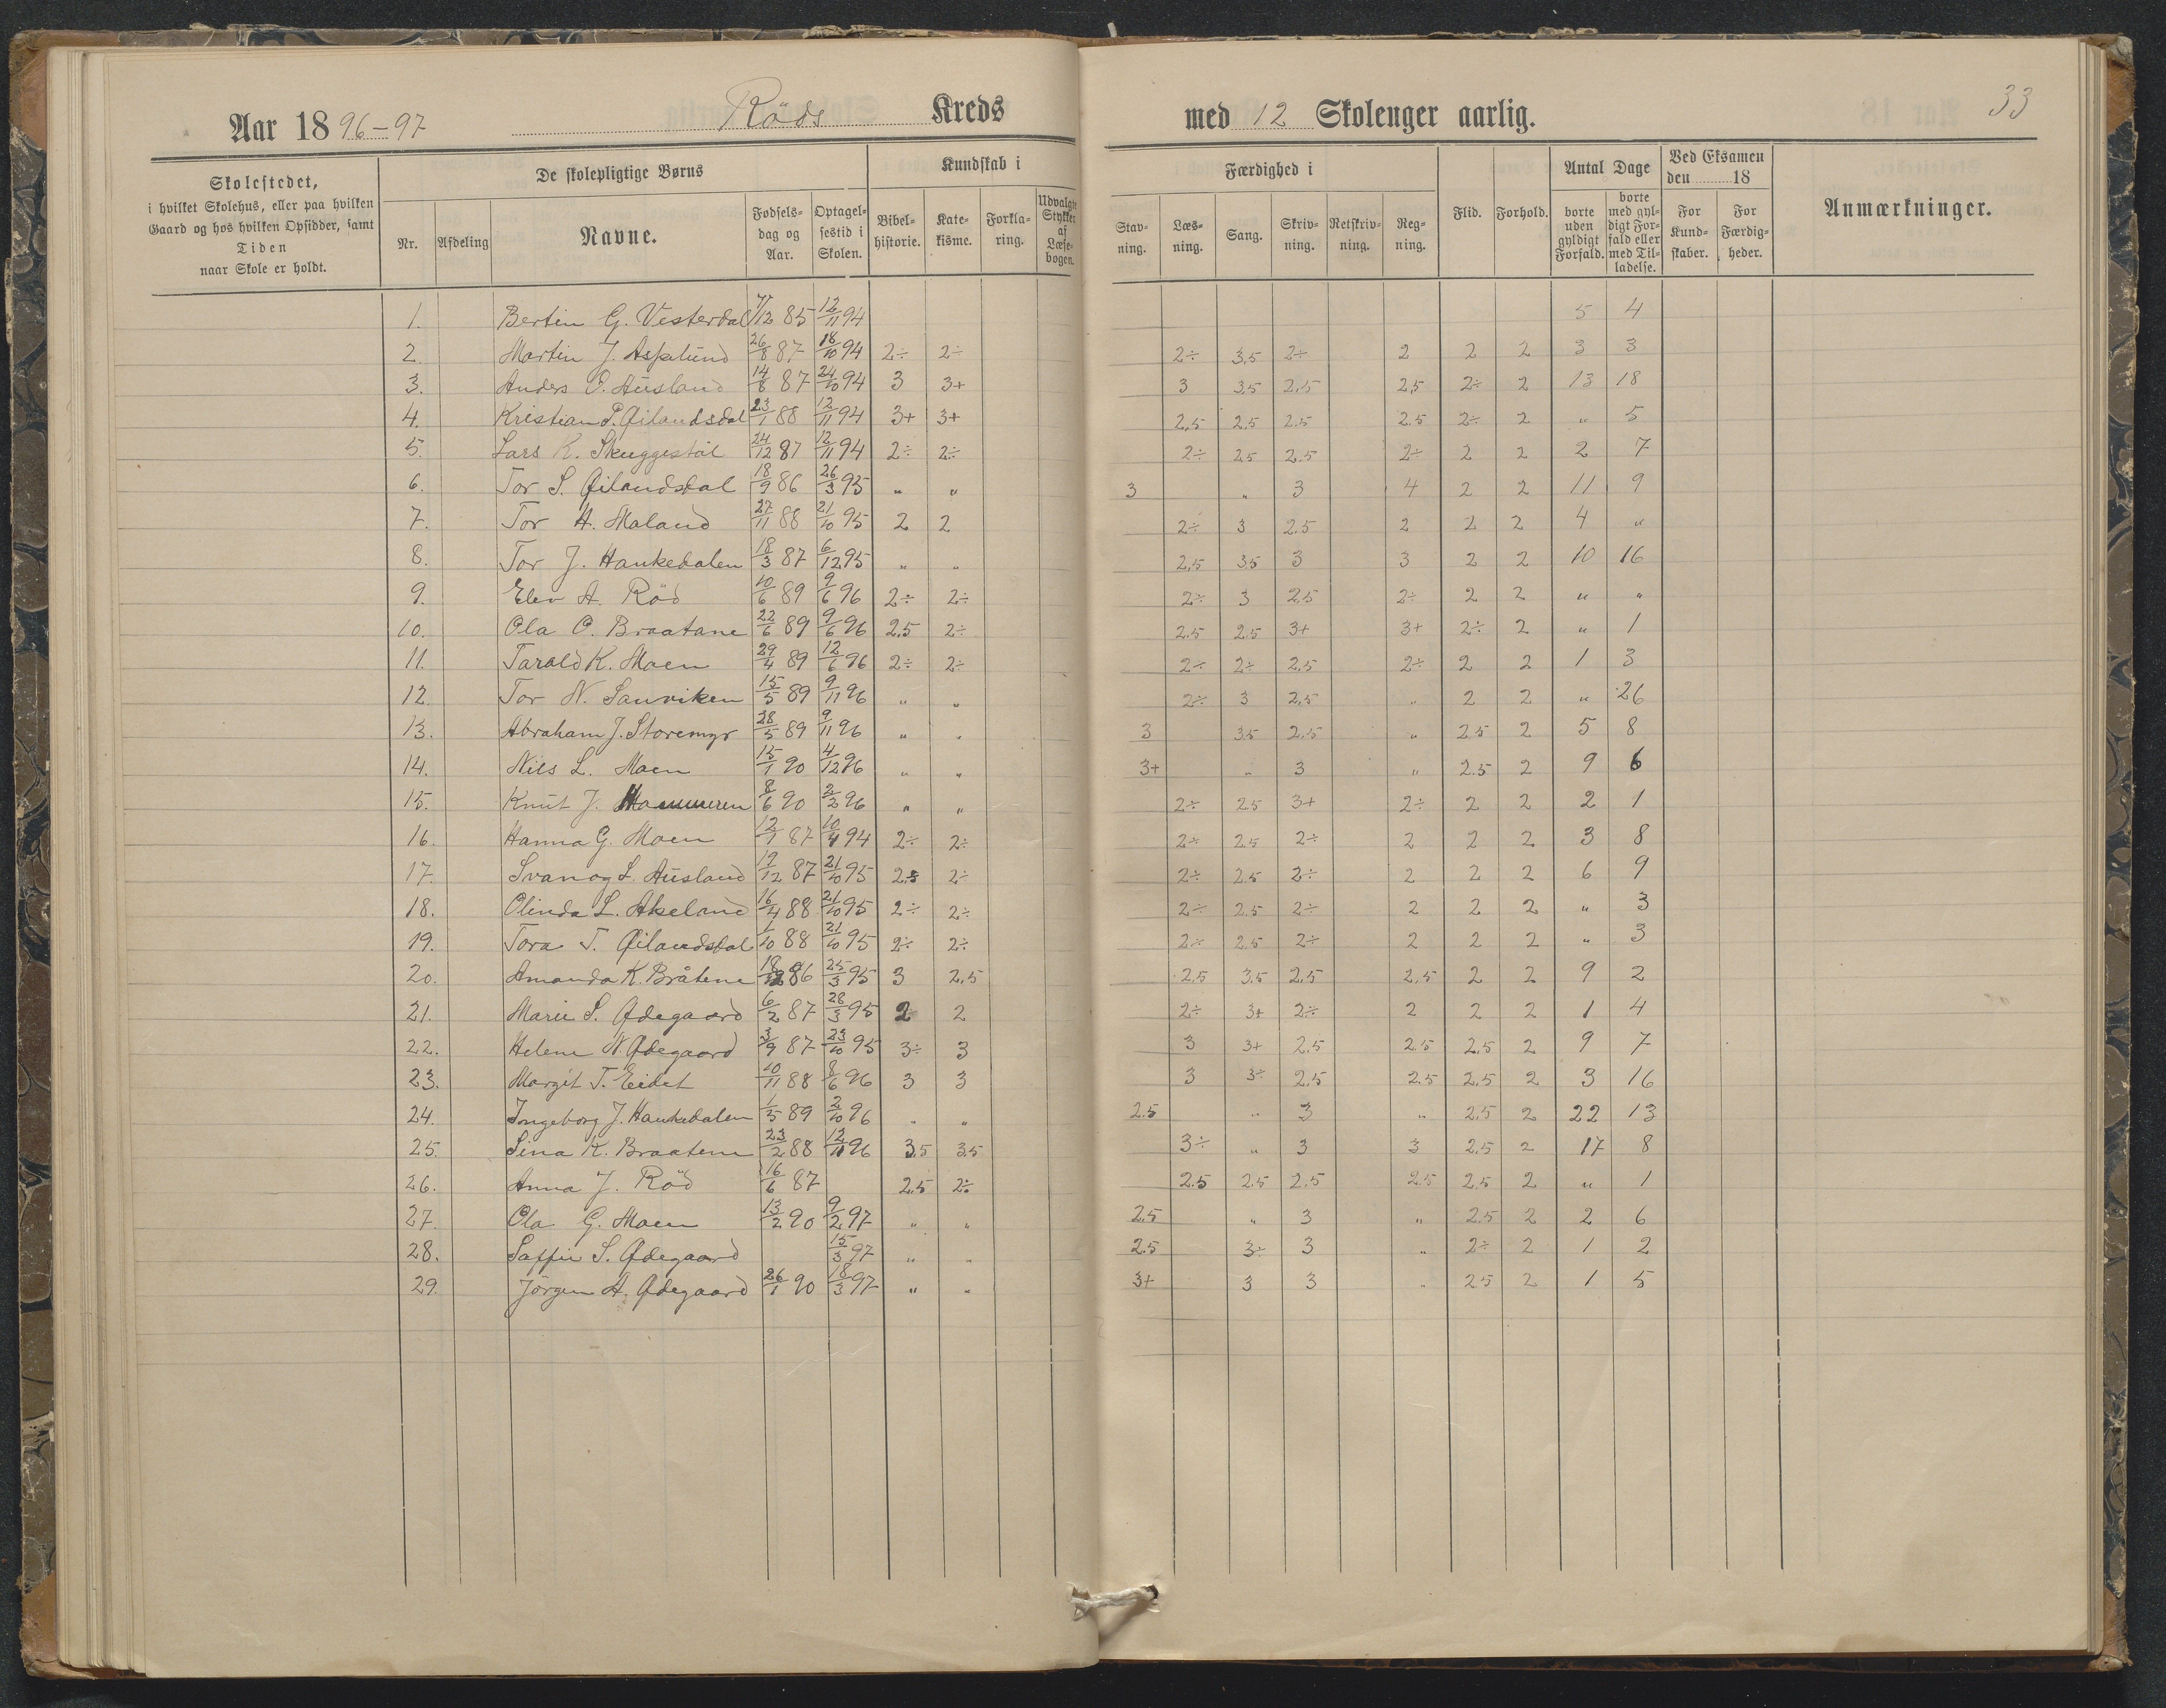 Aar 1896-97 Röds Kreds med 12 Skolenger aarlig. 33
Skolestedet, i hvilket Skolehus, eller paa hvilken Gaard og hos hvilken Opsidder, samt Tiden naar Skole er holdt.
De skolepligtige Børns
Nr. Afdeling Navne. Fødsels-dag og Aar. Optagel-sestid i Skolen.
Kundskab i
Bibel-historie. Kate-kisme. Forkla-ring. Udvalgte Stykker af Læse-bogen.
Færdighed i
Stav-ning. Læs-ning. Sang. Skriv-ning. Retskriv-ning. Reg-ning.
Flid. Forhold.
Antal Dage
borte uden gyldigt Forfald. borte med gyl-digt For-fald eller med Til-ladelse.
Ved Eksamen den 18
For Kund-skaber. For Færdig-heder.
Anmærkninger.
1. Bertin G. Vesterdal 7/12 85 12/11 94 5 4
2. Martin J. Aspelund 26/8 87 18/10 94 2÷ 2÷ 2÷ 3,5 2÷ 2 2 2 3 3
3. Anders O. Ausland 14/8 87 24/10 94 3 3+ 3 3,5 2,5 2,5 2÷ 2 13 18
4. Kristian P. Øilandsdal 23/1 88 12/11 94 3+ 3+ 2,5 2.5 2.5 2.5 2÷ 2 " 5
5. Lars K. Skuggestøl 24/12 87 12/11 94 2÷ 2÷ 2÷ 2.5 2.5 2÷ 2 2 2 7
6. Tor S. Øilandsdal 18/9 86 26/3 95 " " 3 " 3 4 2 2 11 9
7. Tor H. Maland 27/11 88 21/10 95 2 2 2÷ 3 2.5 2 2 2 4 "
8. Tor J. Haukedalen 18/3 87 6/12 95 " " 2,5 3,5 3 3 2 2 10 16
9. Elev A. Röd 10/6 89 9/6 96 2÷ 2÷ 2÷ 3 2,5 2÷ 2 2 " "
10. Ola O. Braatane 22/6 89 9/6 96 2,5 2÷ 2.5 2.5 3+ 3+ 2÷ 2 " 1
11. Tarald K. Moen 29/4 89 12/6 96 2÷ 2÷ 2÷ 2÷ 2,5 2÷ 2 2 1 3
12. Tor N. Sanviken 15/5 89 9/11 96 " " 2÷ 3 2,5 " 2 2 " 26
13. Abraham J. Storemyr 28/5 89 9/11 96 " " 3 3,5 2,5 " 2.5 2 5 8
14. Nils L. Moen 15/1 90 4/12 96 " " 3+ " 3 " 2.5 2 9 6
15. Knut J. 8/6 90 2/2 96 " " 2÷ 2.5 3+ 2÷ 2 2 2 1
16. Hanna G. Moen 12/1 87 10/4 94 2÷ 2÷ 2÷ 2.5 2÷ 2 2 2 3 8
17. Svanog L. Ausland 19/12 87 21/10 95 2,5 2÷ 2÷ 2.5 2÷ 2 2 2 6 9
18. Olinda L. Akeland 16/4 88 21/10 95 2÷ 2÷ 2÷ 2.5 2÷ 2 2 2 " 3
19. Tora T. Øilandsdal 1/10 88 21/10 95 2÷ 2÷ 2÷ 2.5 2÷ 2 2 2 " 3
20. Amanda K. Bråtene 18/12 86 25/3 95 3 2,5 2,5 3.5 2,5 2,5 2 2 9 2
21. Marie S. Ødegaard 6/2 87 28/3 95 2 2 2÷ 3+ 2÷ 2 2 2 1 4
22. Helene N. Ødegaard 3/9 87 23/10 95 3÷ 3 3 3+ 2,5 2.5 2,5 2 9 7
23. Margit T. Eidet 10/11 88 8/6 96 3 3 3 3÷ 2,5 2.5 2,5 2 3 16
24. Ingeborg J. Haukedalen 1/5 89 2/10 96 " " 2.5 " 3 " 2,5 2 22 13
25. Sina K. Braatene 23/2 88 12/11 96 3.5 3.5 3÷ " 3 3 2.5 2 17 8
26. Anna J. Röd 16/6 87 2,5 2÷ 2.5 2.5 2,5 2.5 2,5 2 " 1
27. Ola G. Moen 13/2 90 9/2 97 " " 2.5 " 3 " 2.5 2 2 6
28. Saffie S. Ødegaard 15/3 97 " " 2.5 3÷ 3 " 2÷ 2 1 2
29. Jörgen A. Ødegaard 26/1 90 18/3 97 " " 3+ 3 3 " 2.5 2 1 5